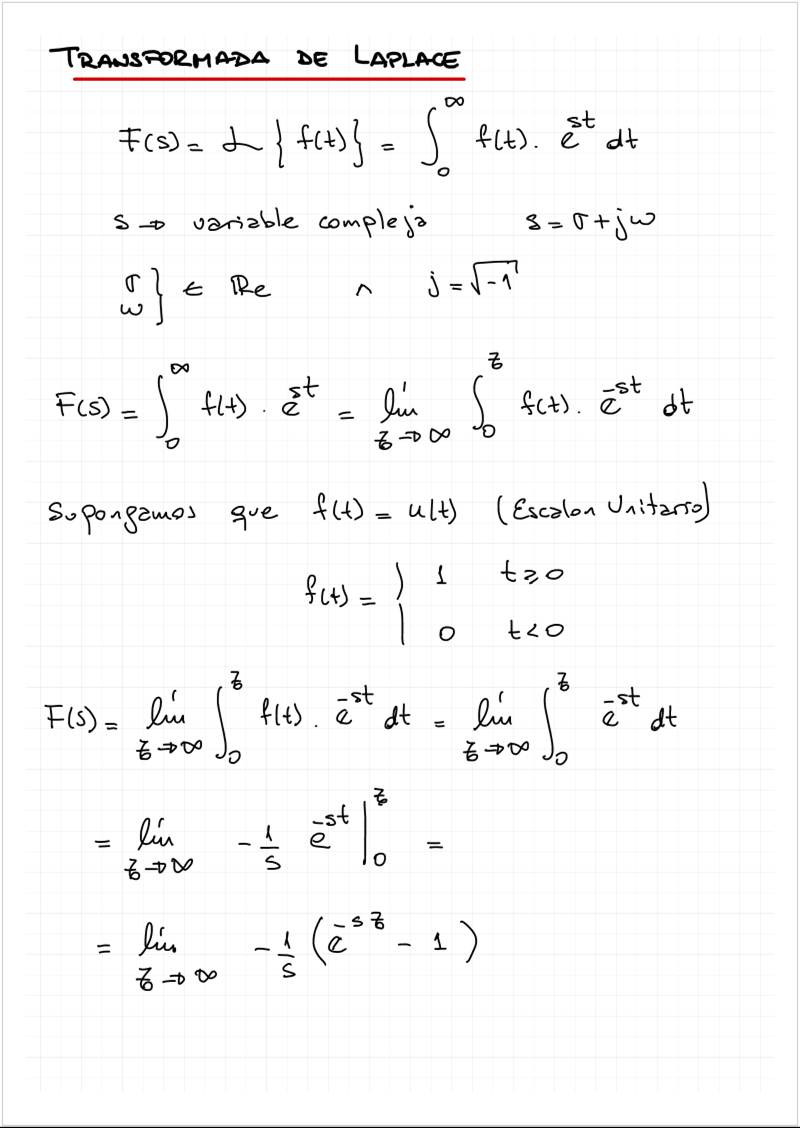 TRANSFORMADA DE LAPLACE
F(s) = ℒ { f(t) } = ∫₀^∞ f(t) . e^{st} dt
s → variable compleja s = σ + jω
σ ω } ∈ Re ∧ j = √-1
F(s) = ∫₀^∞ f(t) . e^{st} = lím_{z→∞} ∫₀^z f(t) . e^{-st} dt
Supongamos que f(t) = u(t) (Escalon Unitario)
f(t) = { 1 t ≥ 0
0 t < 0
F(s) = lím_{z→∞} ∫₀^z f(t) . e^{-st} dt = lím_{z→∞} ∫₀^z e^{-st} dt
= lím_{z→∞} - 1/s e^{-st} |₀^z =
= lím_{z→∞} - 1/s ( e^{-sz} - 1 )